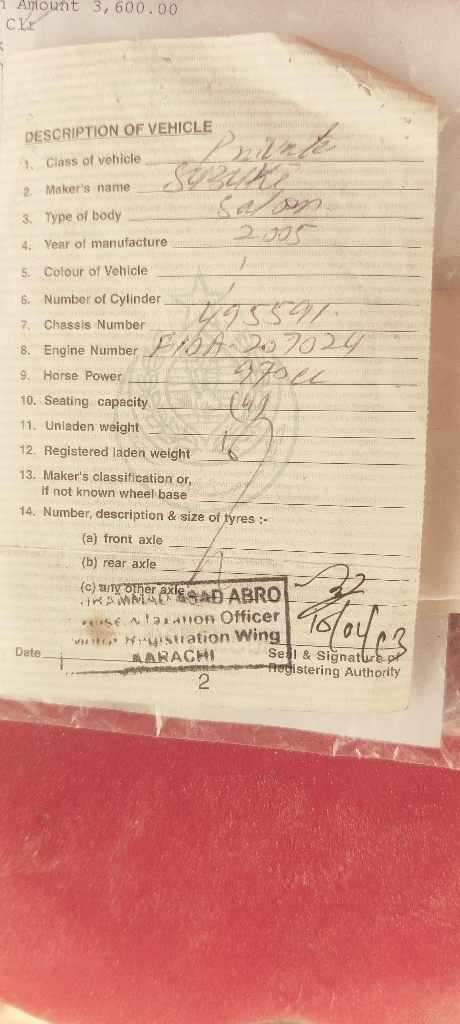 Amount 3,600.00
Clr
DESCRIPTION OF VEHICLE
1. Class of vehicle Private
2. Maker's name SUZUKI
3. Type of body Saloon
4. Year of manufacture 2005
5. Colour of Vehicle
6. Number of Cylinder
7. Chassis Number 495591
8. Engine Number F10A 207024
9. Horse Power 970cc
10. Seating capacity (4)
11. Unladen weight
12. Registered laden weight
13. Maker's classification or,
if not known wheel base
14. Number, description & size of tyres :-
(a) front axle
(b) rear axle
(c) any other axle
ASAD ABRO
Officer
Registration Wing
KARACHI
Date
Seal & Signature of
Registering Authority
2